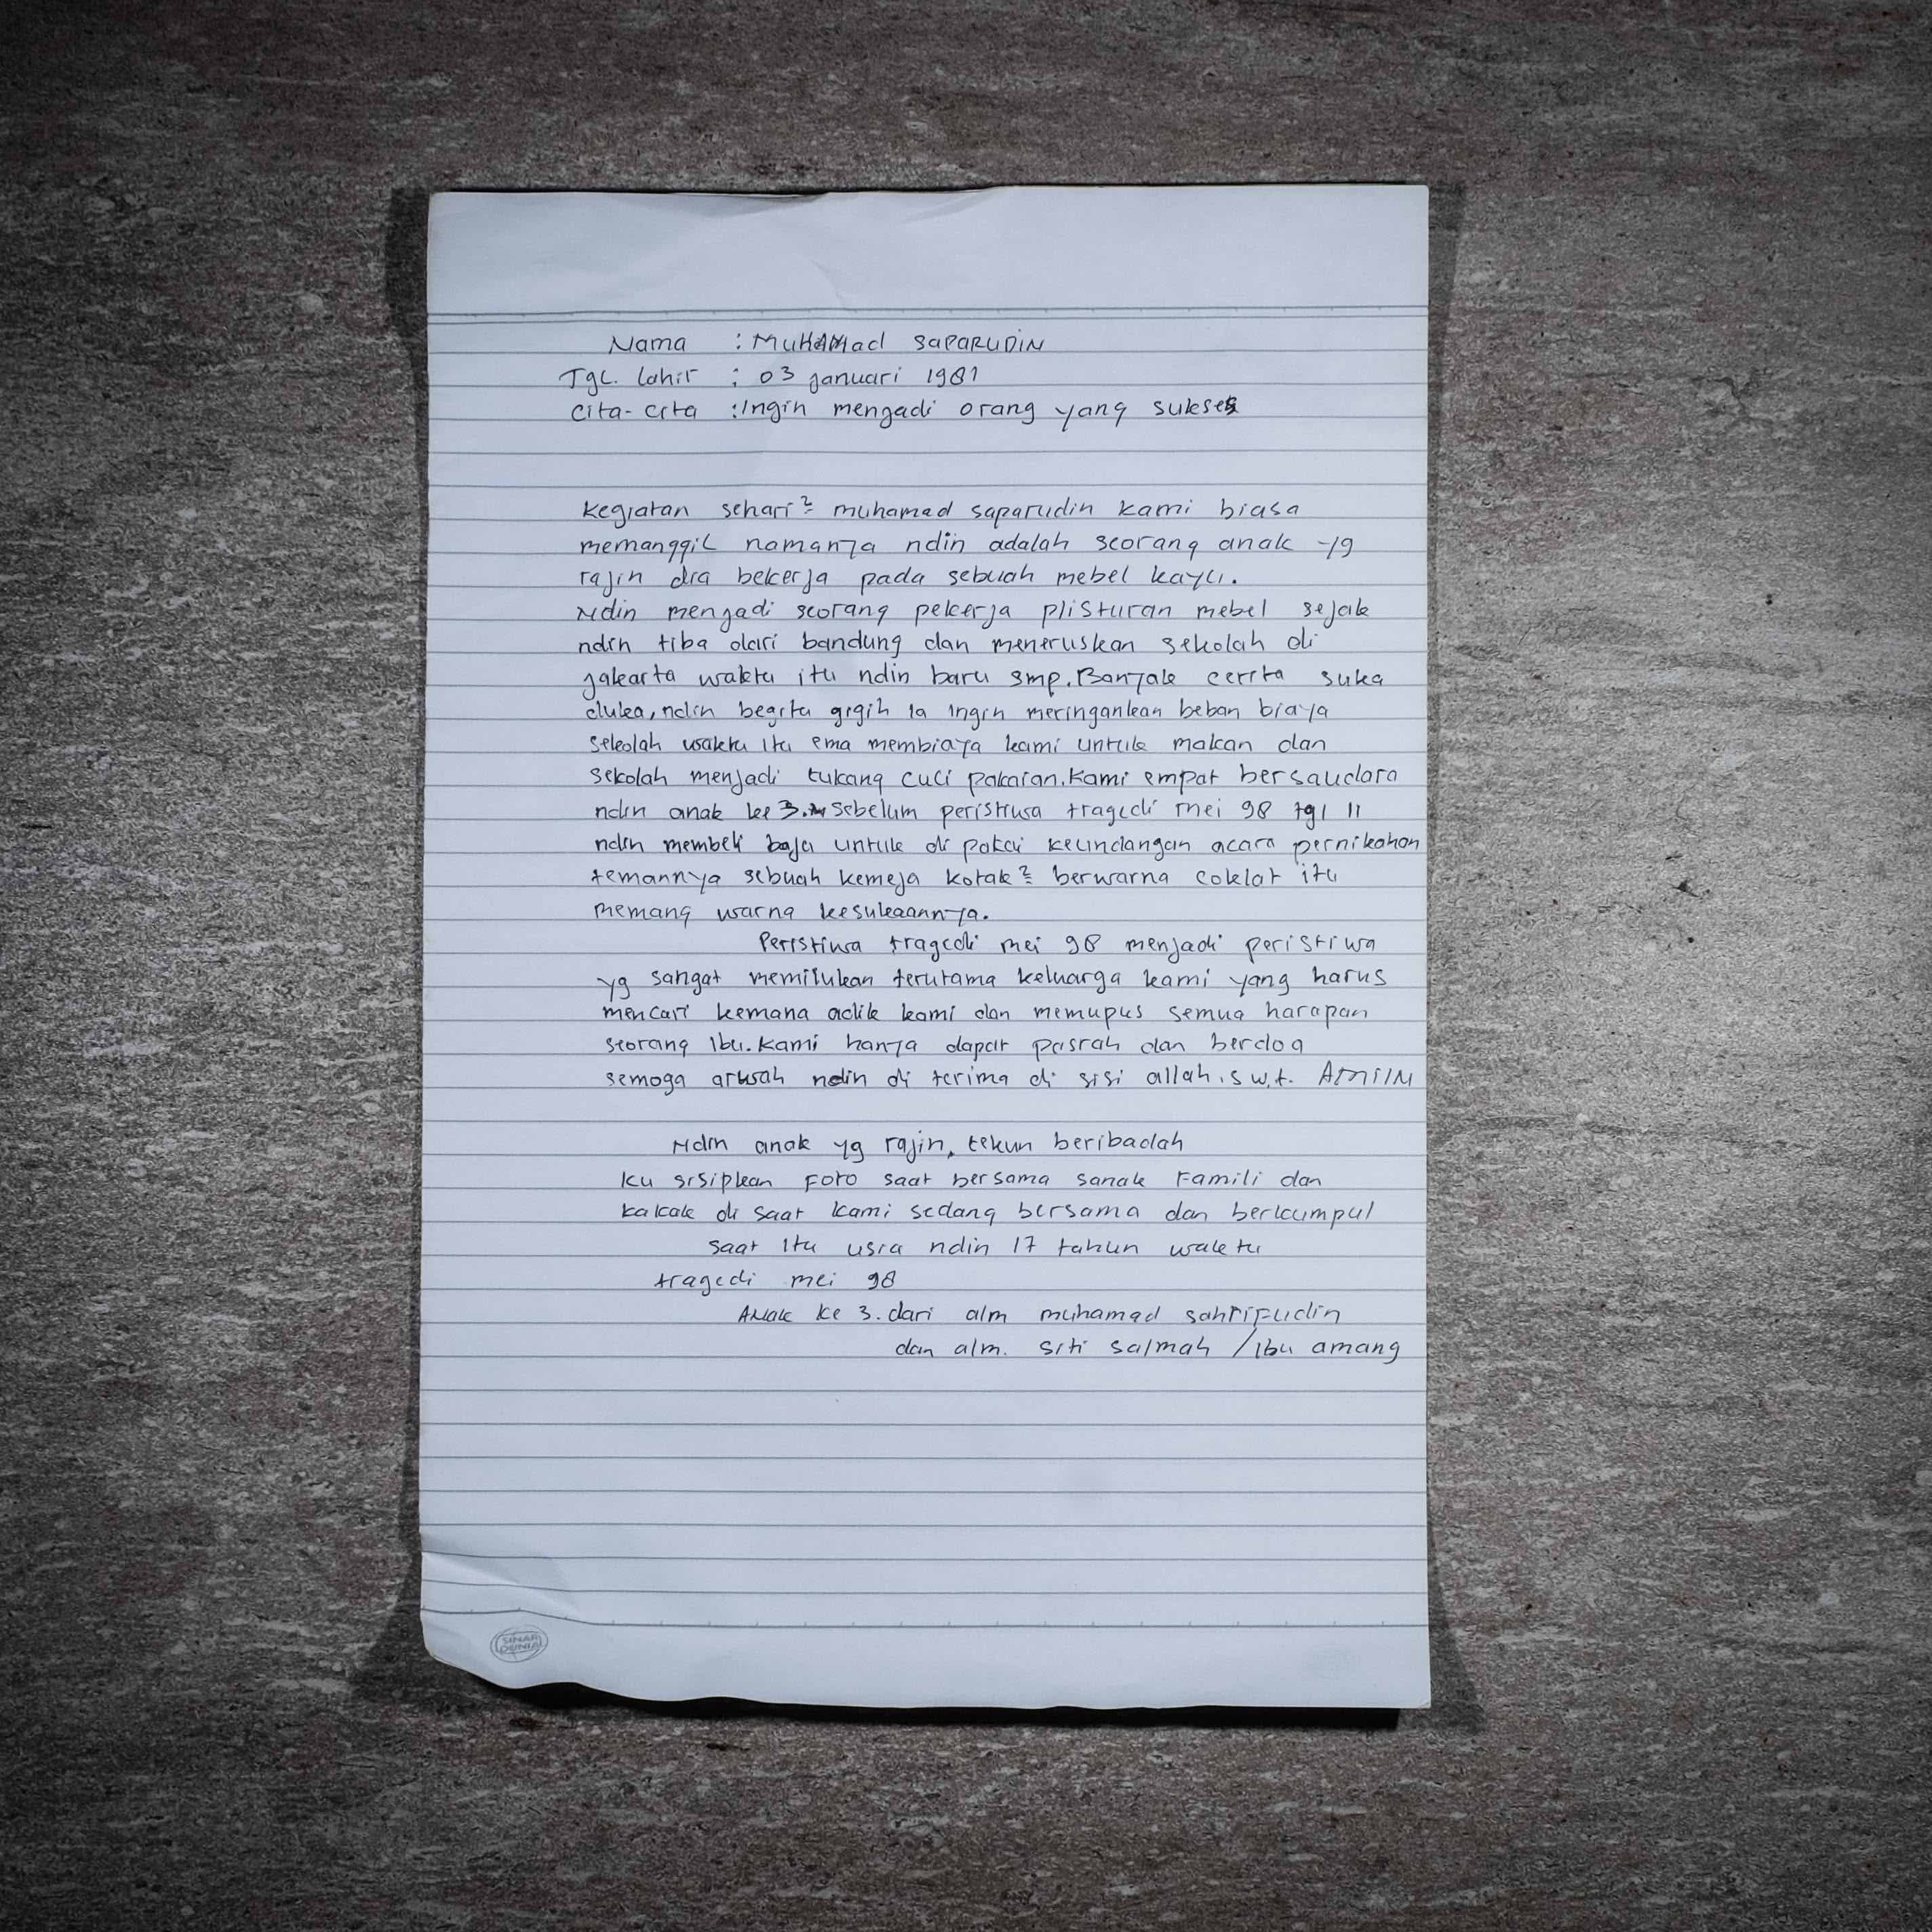 Nama : Muhamad Saparudin
Tgl. lahir : 03 januari 1981
Cita-cita : Ingin mengadi orang yang sukses
kegiatan sehari² muhamad saparudin kami biasa
memanggil namanya ndin adalah seorang anak yg
rajin dia bekerja pada sebuah mebel kayu.
Ndin mengadi seorang pekerja plisturan mebel sejak
ndin tiba dari bandung dan meneruskan sekolah di
jakarta waktu itu ndin baru smp. Banyak cerita suka
duka, ndin begitu gigih ia ingin meringankan beban biaya
sekolah waktu itu ema membiaya kami untuk makan dan
sekolah menjadi tukang cuci pakaian. kami empat bersaudara
ndin anak ke 3. sebelum peristiwa tragedi mei 98 tgl 11
ndin membeli baju untuk di pakai keundangan acara pernikahan
temannya sebuah kemeja kotak² berwarna coklat itu
memang warna kesukaannya.
Peristiwa tragedi mei 98 menjadi peristiwa
yg sangat memilukan terutama keluarga kami yang harus
mencari kemana adik kami dan memupus semua harapan
seorang ibu. kami hanya dapat pasrah dan berdoa
semoga arwah ndin di terima di sisi allah. s w.t. AMIIN
Ndin anak yg rajin, tekun beribadah
ku sisipkan foto saat bersama sanak famili dan
kakak di saat kami sedang bersama dan berkumpul
saat itu usia ndin 17 tahun waktu
tragedi mei 98
Anak ke 3. dari alm muhamad sahrifudin
dan alm. siti salmah / ibu amang
SINAR
DUNIA